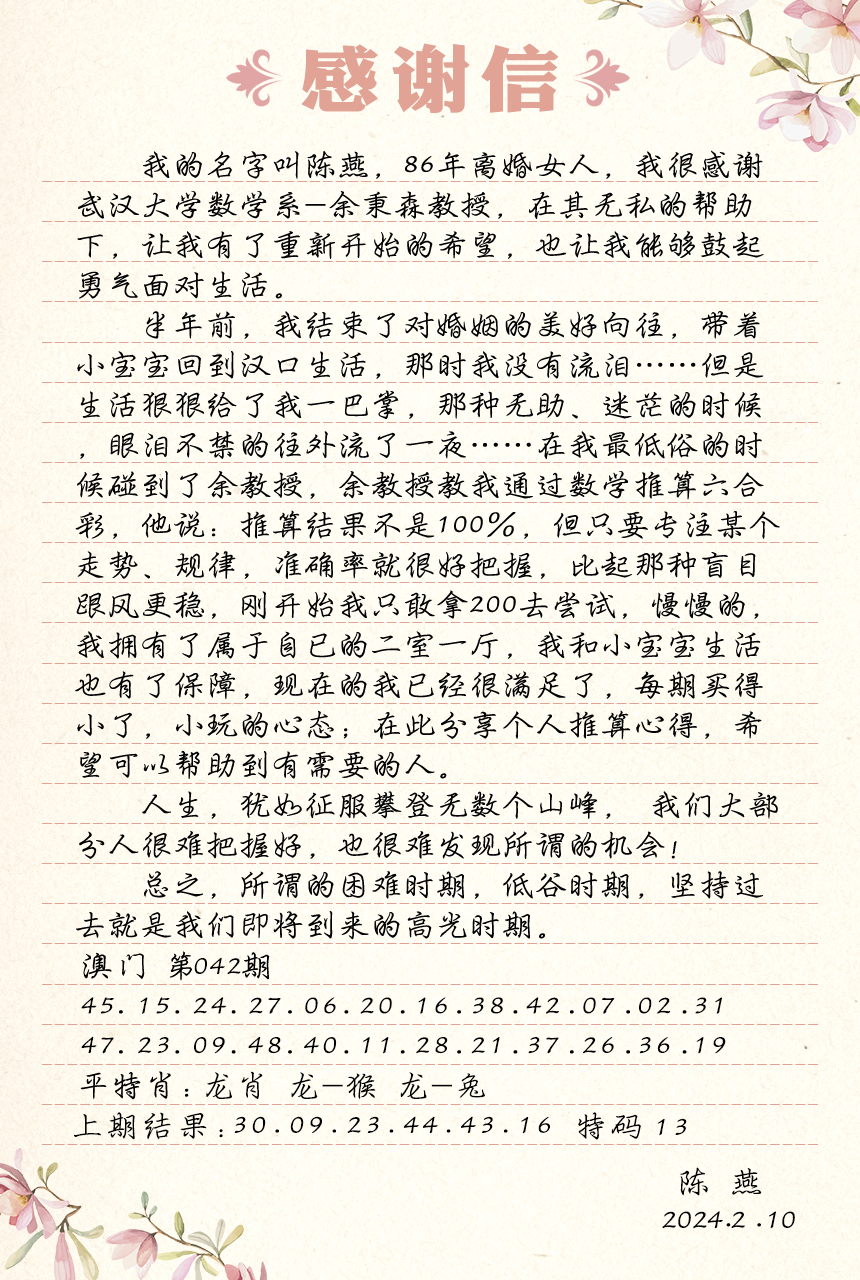 感谢信
我的名字叫陈燕，86年离婚女人，我很感谢
武汉大学数学系—余秉森教授，在其无私的帮助
下，让我有了重新开始的希望，也让我能够鼓起
勇气面对生活。
半年前，我结束了对婚姻的美好向往，带着
小宝宝回到汉口生活，那时我没有流泪……但是
生活狠狠给了我一巴掌，那种无助、迷茫的时候
，眼泪不禁的往外流了一夜……在我最低俗的时
候碰到了余教授，余教授教我通过数学推算六合
彩，他说：推算结果不是100%，但只要专注某个
走势、规律，准确率就很好把握，比起那种盲目
跟风更稳，刚开始我只敢拿200去尝试，慢慢的，
我拥有了属于自已的二室一厅，我和小宝宝生活
也有了保障，现在的我已经很满足了，每期买得
小了，小玩的心态；在此分享个人推算心得，希
望可以帮助到有需要的人。
人生，犹如征服攀登无数个山峰， 我们大部
分人很难把握好，也很难发现所谓的机会！
总之，所谓的困难时期，低谷时期，坚持过
去就是我们即将到来的高光时期。
澳门 第042期
45.15.24.27.06.20.16.38.42.07.02.31
47.23.09.48.40.11.28.21.37.26.36.19
平特肖：龙肖 龙—猴 龙—兔
上期结果：30.09.23.44.43.16 特码 13
陈 燕
2024.2.10